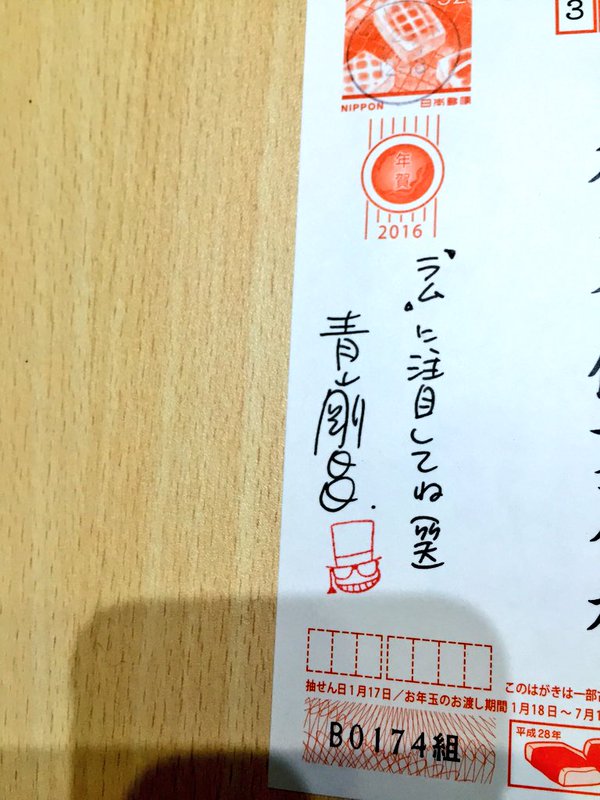 52
3
NIPPON 日本郵便
年賀
2016
〝ラム〟に注目してね(笑)
青山剛昌.
抽せん日1月17日／お年玉のお渡し期間1月18日～7月1
このはがきは一部
B0174組
平成28年